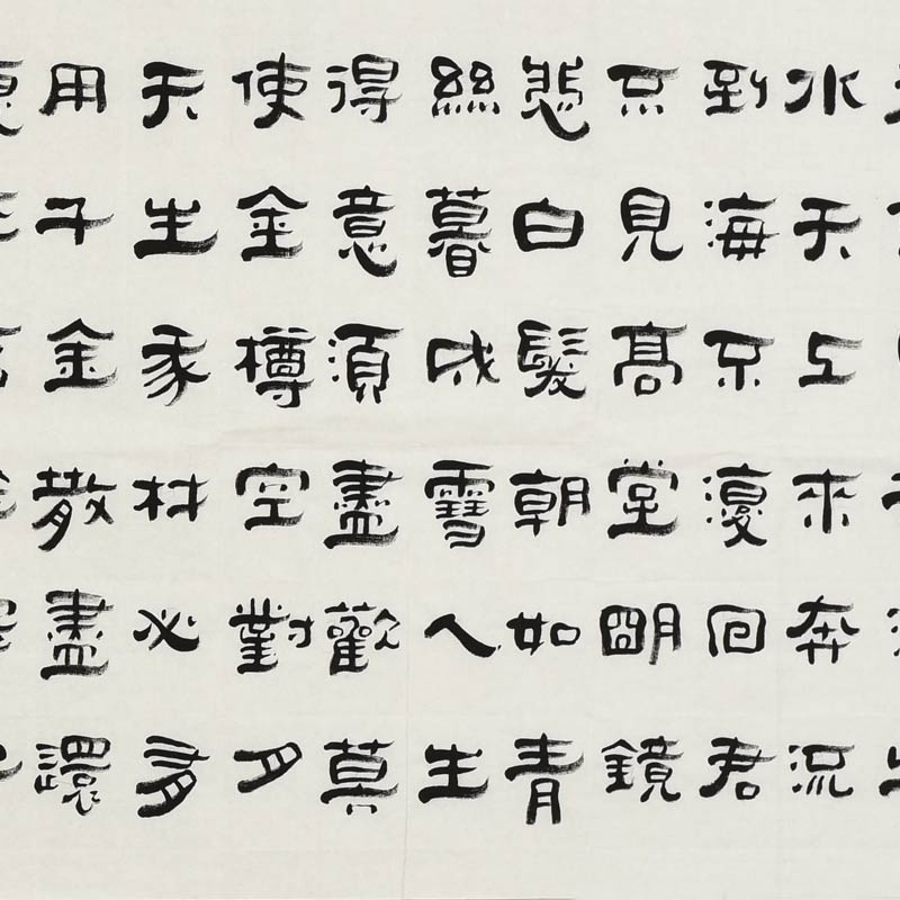 水天上來奔流
到海不復回君
不見高堂明鏡
悲白髮朝如青
絲暮成雪人生
得意須盡歡莫
使金樽空對月
天生我材必有
用千金散盡還